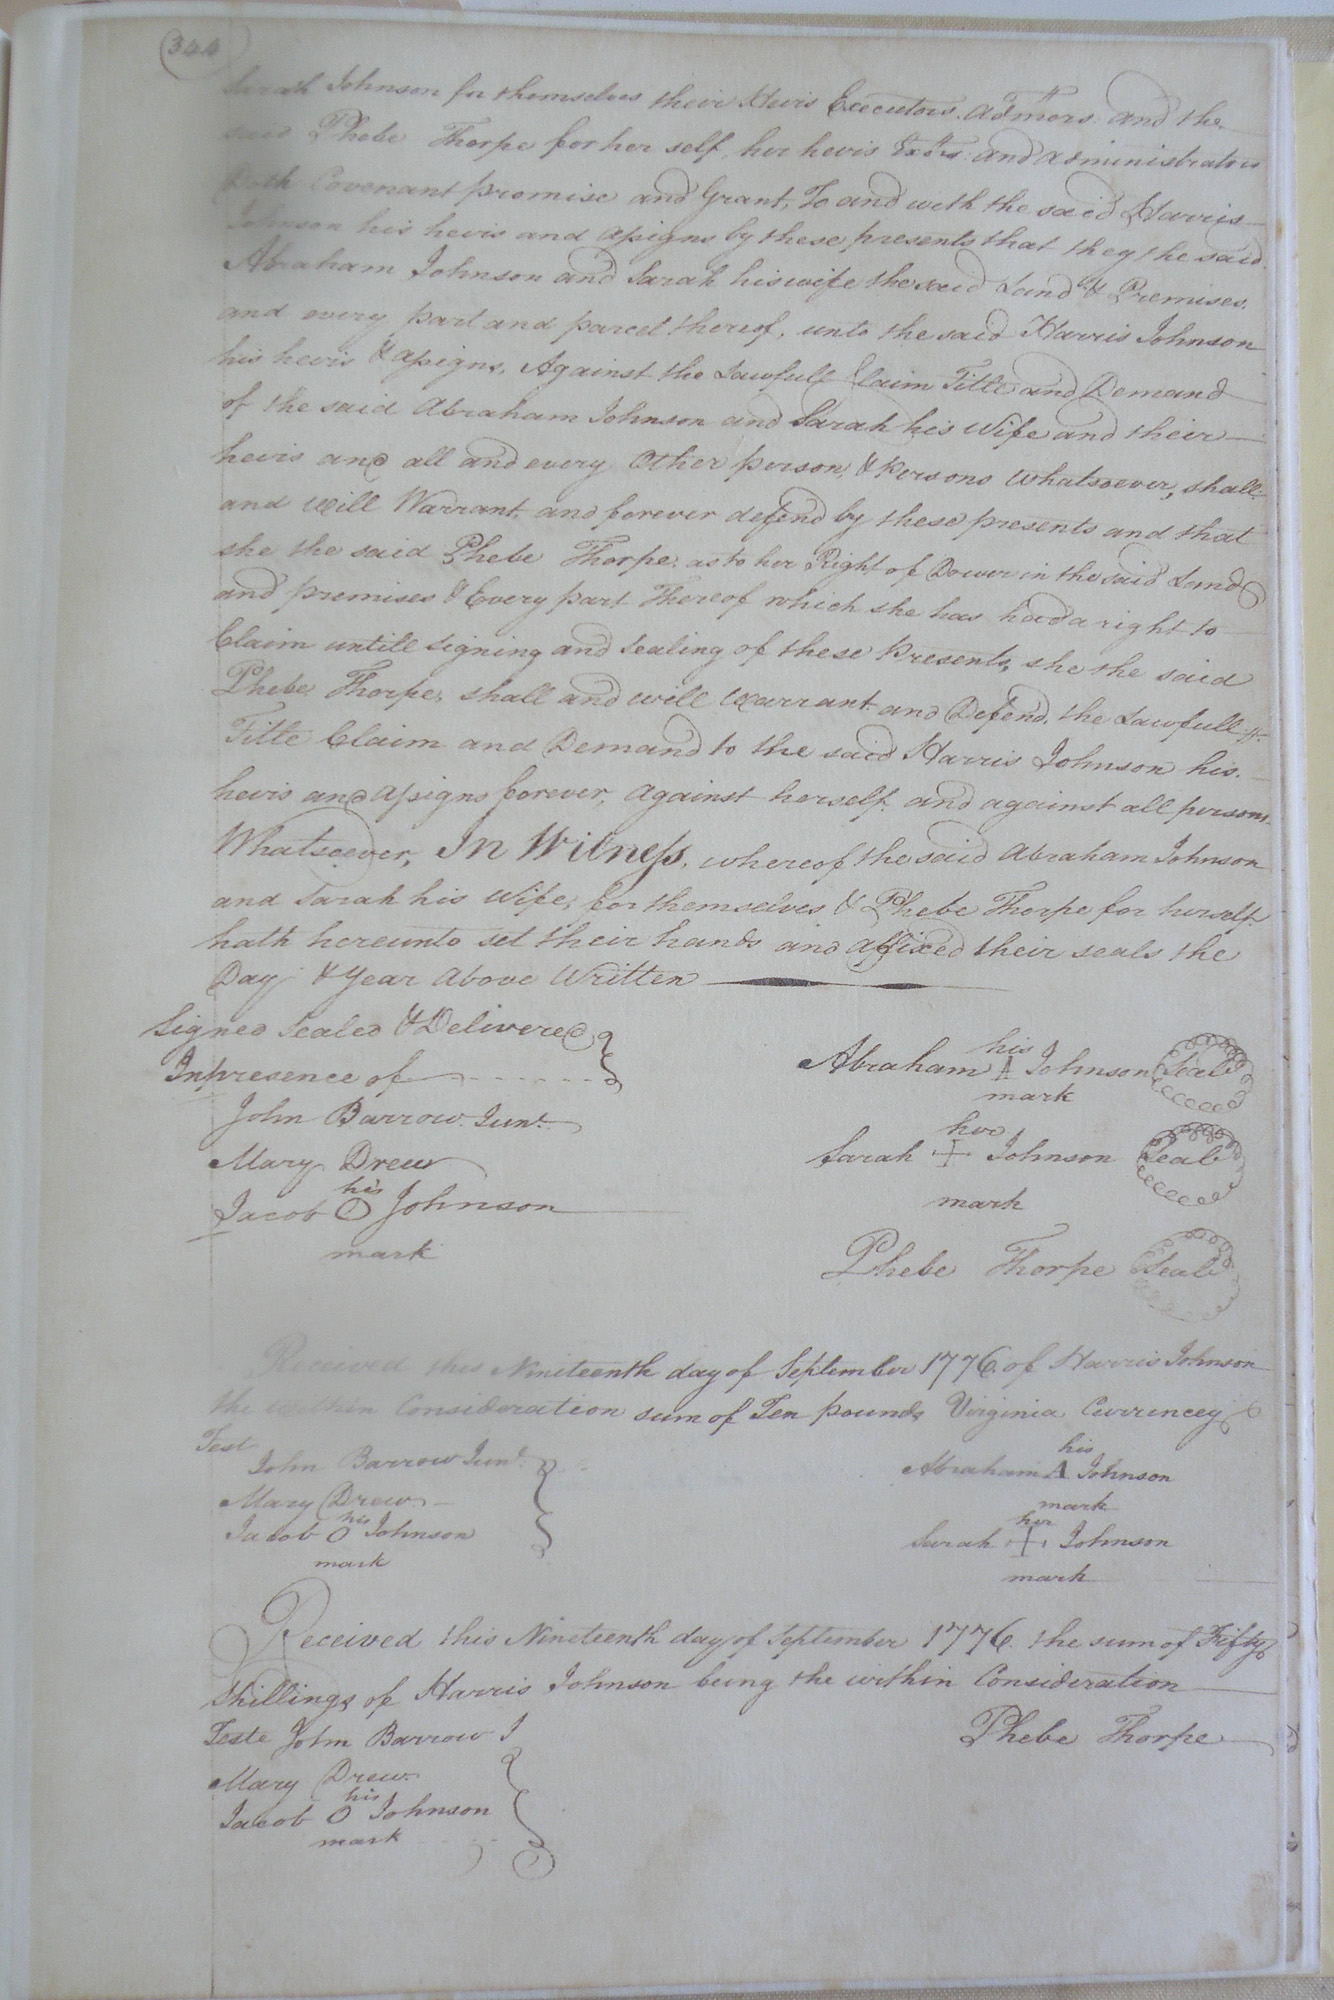 344
Sarah Johnson for themselves their Heirs Executors. Adm^ors. and the
said Phebe Thorpe for her self, her heirs Ex^ors: and administrators
doth Covenant promise and Grant, To and with the said Harris
Johnson his heirs and assigns by these presents that they the said
Abraham Johnson and Sarah his wife the said Land & Premises.
and every part and parcel thereof, unto the said Harris Johnson
his heirs & assigns, Against the Lawfull Claim Title and Demand
of the said Abraham Johnson and Sarah his Wife and their
heirs and all and every Other person, & Persons Whatsoever, shall
and Will Warrant, and forever defend by these presents and that
she the said Phebe Thorpe, as to her Right of Dower in the said Land
and premises & Every part Thereof which she has had a right to
Claim untill signing and Sealing of these Presents, she the said
Phebe Thorpe, shall and will Warrant and Defend, the Lawfull
Title Claim and Demand to the said Harris Johnson his.
heirs and assigns forever, against herself. and against all persons
Whatsoever, In Witness, whereof the said Abraham Johnson
and Sarah his Wife, for themselves & Phebe Thorpe for herself
hath hereunto set their hands and affixed their seals the
Day & Year Above Written
Signed Sealed & Delivered
In presence of
his
Abraham A Johnson Seal
mark
John Barrow Jun^r.
her
Sarah + Johnson Seal
mark
Mary Drew
his
Jacob O Johnson
mark
Phebe Thorpe Seal
Received this Nineteenth day of September 1776 of Harris Johnson
the within Consideration sum of Ten pounds Virginia Currencey
Test
John Barrow Jun^r.
his
Abraham A Johnson
mark
Mary Drew
his
Jacob O Johnson
mark
her
Sarah + Johnson
mark
Received this Nineteenth day of September 1776. the sum of Fifty
Shillings of Harris Johnson being the within Consideration
Teste John Barrow J
Phebe Thorpe
Mary Drew
his
Jacob O Johnson
mark